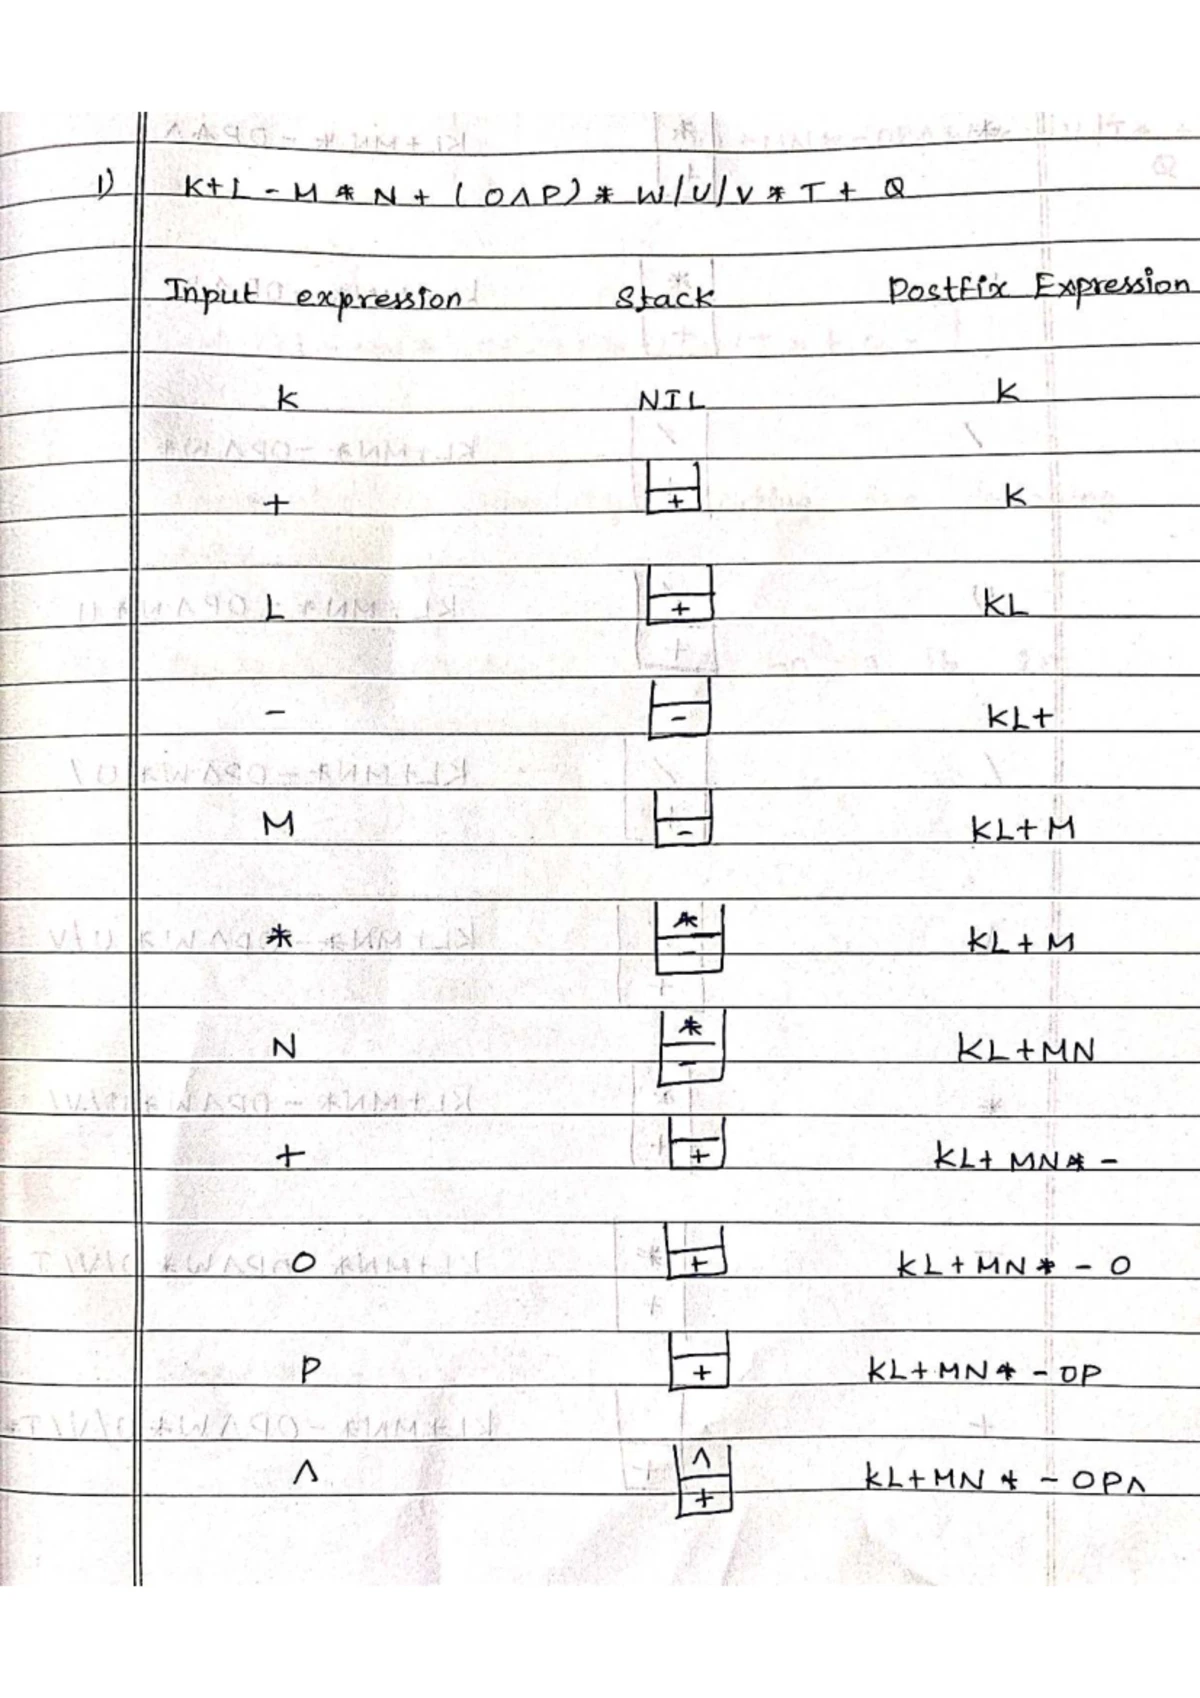 1) K+L - M * N + ( O^P) * W/U/V * T + Q
Input expression Stack Postfix Expression
K NIL K
+ + K
L + KL
- - KL+
M - KL+M
* * - KL+M
N * - KL+MN
+ + KL+ MN* -
O + KL+MN* - O
P + KL+MN* - OP
^ ^ + KL+MN * - OP^